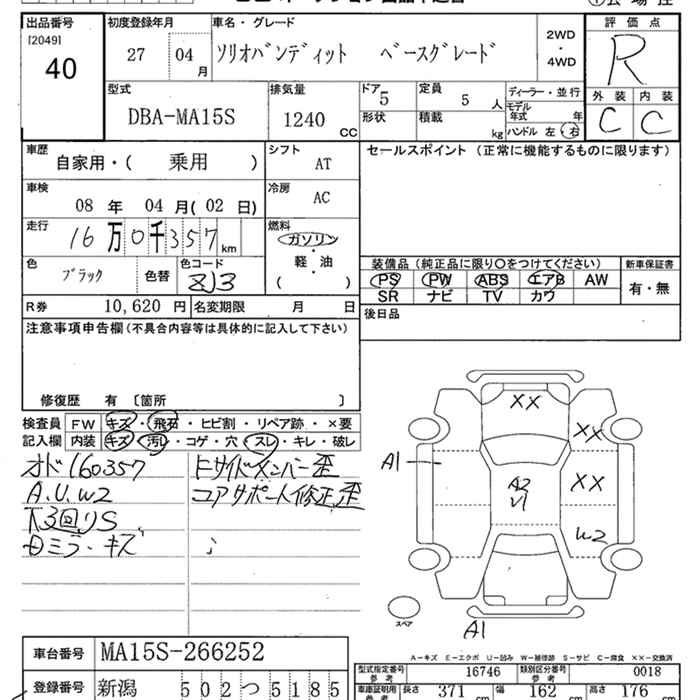 出品番号 初度登録年月 車名・グレード 評価点
[2049]
40
27 04 月
ソリオバンディット ベースグレード
2WD
・
4WD
R
型式 排気量 ドア 定員 ディーラー・並行 外装 内装
DBA-MA15S 1240 CC 5 5 人
モデル年式 年
形状 積載 kg ハンドル 左・右
C C
車歴 シフト セールスポイント (正常に機能するものに限ります)
自家用・( 乗用 ) AT
車検 冷房
08 年 04 月(02 日) AC
走行 燃料
16万0千357 km ガソリン
軽・油
( )
色 色コード
ブラック 色替 ZJ3
装備品(純正品に限り○をつけてください) 新車保証書
PS PW ABS エアB AW 有・無
SR ナビ TV カワ
R券 10,620 円 名変期限 月 日
後日品
注意事項申告欄(不具合内容等は具体的に記入して下さい)
修復歴 有 〔箇所 〕
検査員 FW キズ・飛石・ヒビ割・リペア跡・×要
記入欄 内装 キズ・汚レ・コゲ・穴・スレ・キレ・破レ
オド160357
A.U.W2
下3回りS
ミラ・キズ
サイドメンバー歪
コアサポート修正、歪
XX
XX
A1
A2
U1
XX
W2
スペア
A1
A-キズ E-エクボ U-凹み W-補修跡 S-サビ C-腐食 ××-交換済
車台番号 MA15S-266252
型式指定番号 参考 16746 類別区分番号 参考 0018
登録番号 新潟 502つ5185
車庫証明用 参考 長さ 371 cm 幅 162 cm 高さ 176 cm